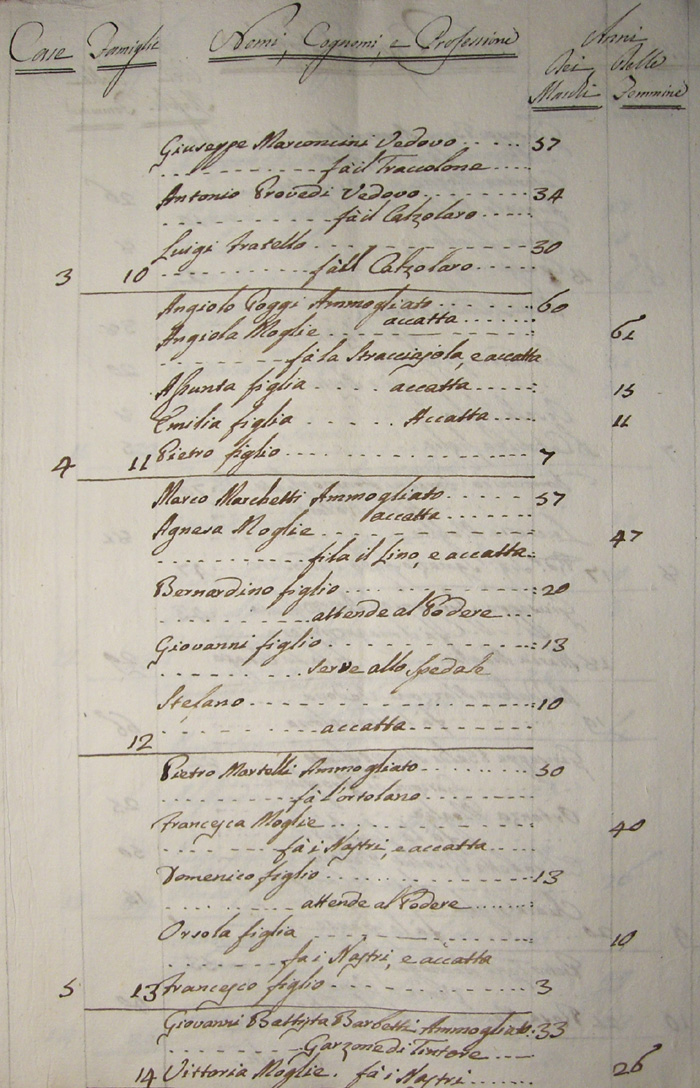 Case Famiglie Nomi, Cognomi, e Professione Anni
Dei Delle
Maschi Femmine
Giuseppe Marconcini Vedovo 57
fà il Traccolone
Antonio Provedi Vedovo 34
fà il Calzolaro
Luigi fratello 30
3 10 fà il Calzolaro
Angiolo Poggi Ammogliato 60
accatta
Angiola Moglie 61
fà la Stracciajola, e accatta
Assunta figlia accatta 15
Emilia figlia Accatta 11
4 11 Pietro figlio 7
Marco Marchetti Ammogliato 57
accatta
Agnesa Moglie 47
fila il Lino, e accatta
Bernardino figlio 20
attende al Podere
Giovanni figlio 13
serve allo spedale
Stefano 10
accatta
12
Pietro Martelli Ammogliato 50
fà l'ortolano
Francesca Moglie 40
fà i Nastri, e accatta
Domenico figlio 13
attende al Podere
Orsola figlia 10
fa i Nastri, e accatta
5 13 Francesco figlio 3
Giovanni Battista Barbetti Ammogliato 33
Garzone di Tintore
14 Vittoria Moglie. fà i Nastri 26